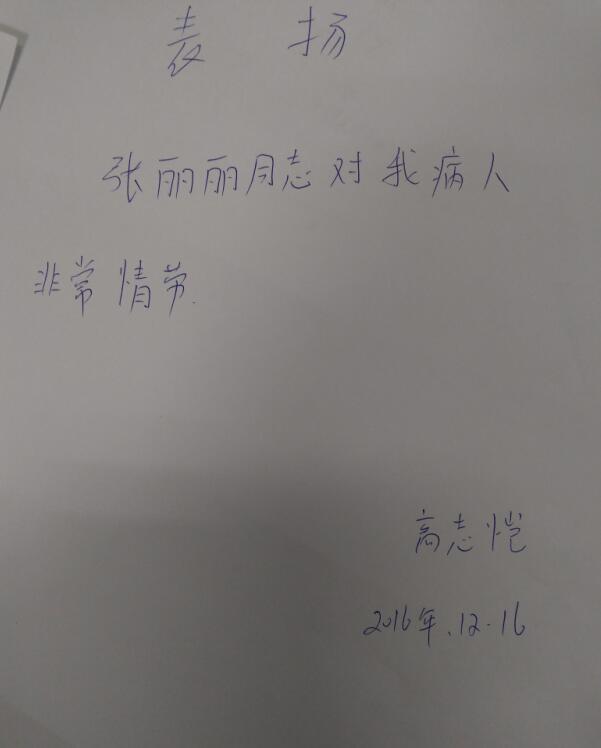 表 扬
张丽丽同志对我病人
非常情节.
高志恺
2016年.12.16